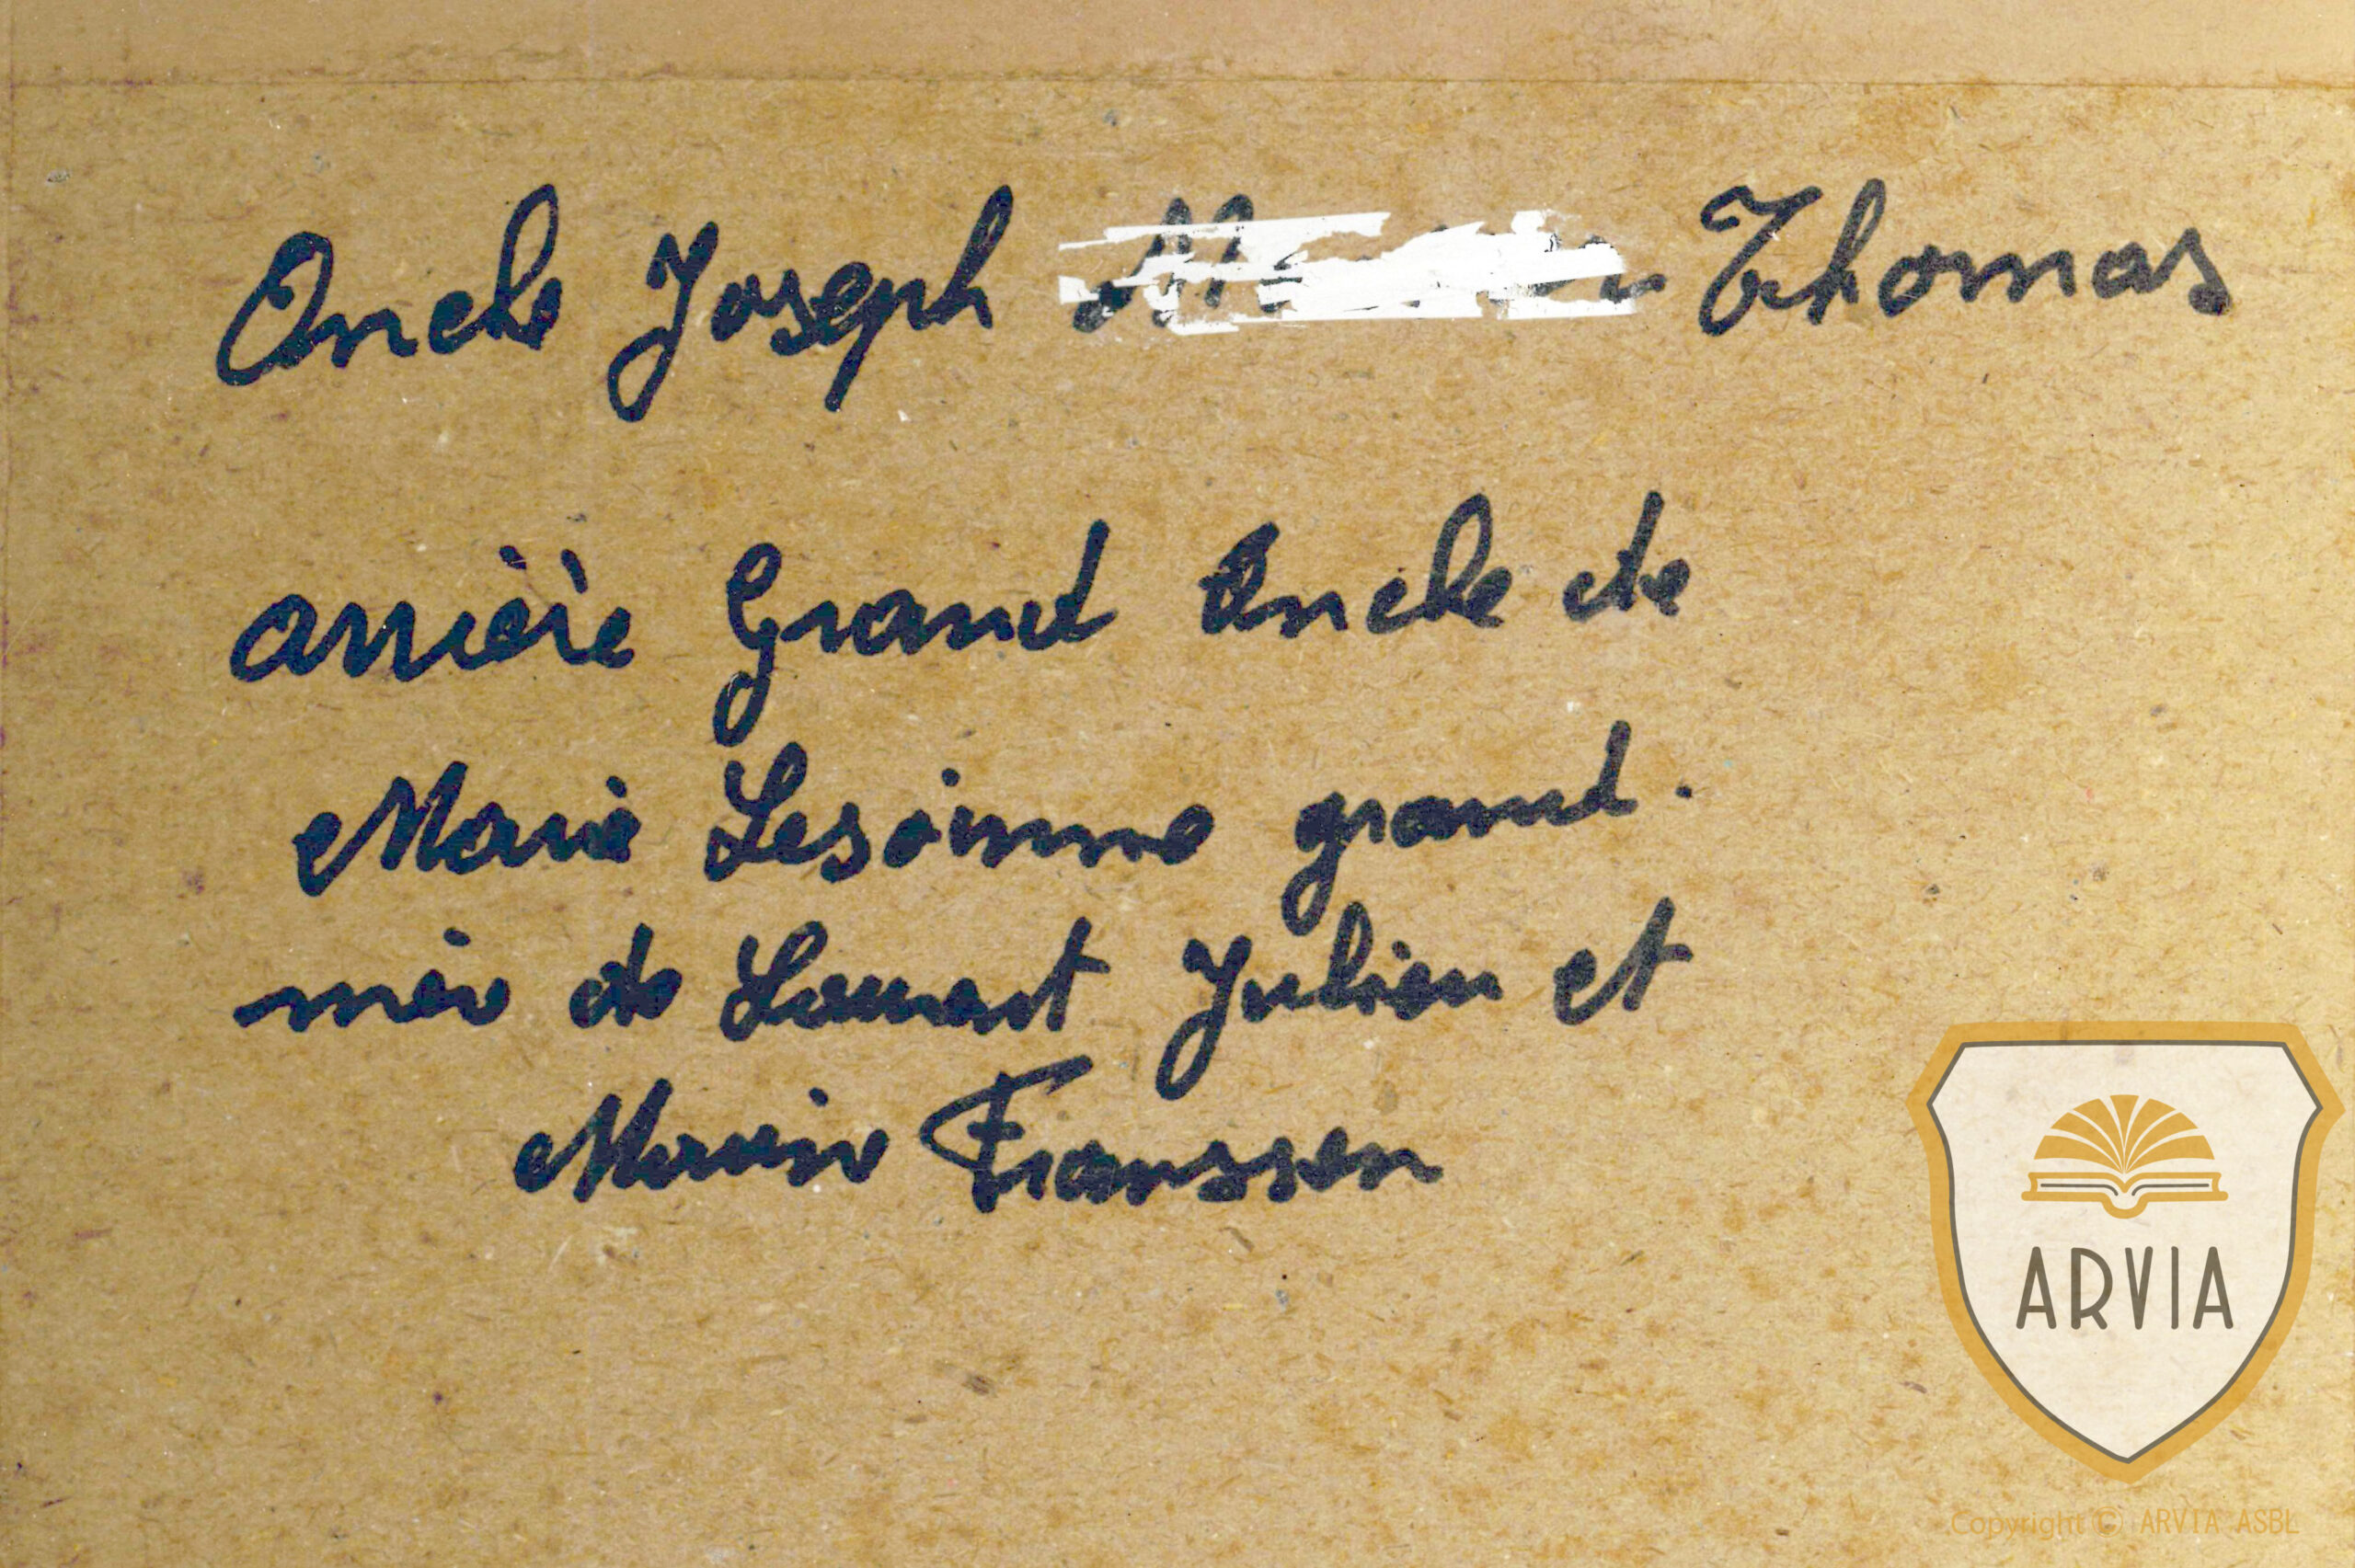 Oncle Joseph Thomas
arrière Grand Oncle de
Marie Lesoinne grand.
mère de Laurent Julien et
Marine Franssen
ARVIA
Copyright © ARVIA ASBL